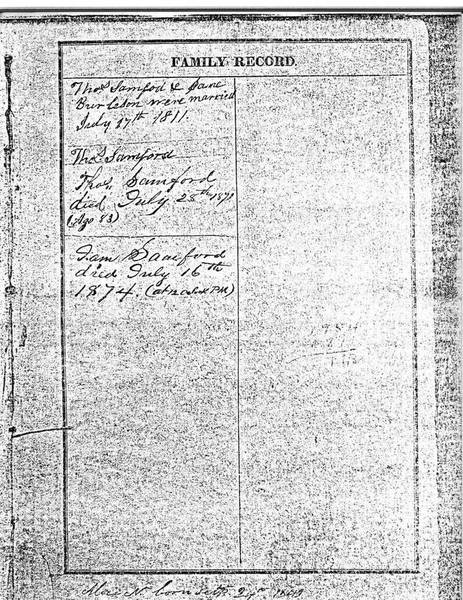 FAMILY RECORD.
Thos Samford & Jane
Burleson were married
July 17th 1811.
Thos Samford
Thos, Samford
died July 28th 1871
(Age 83)
Samford
died July 16th
1874. (at 12 o'clock PM)
born 24th